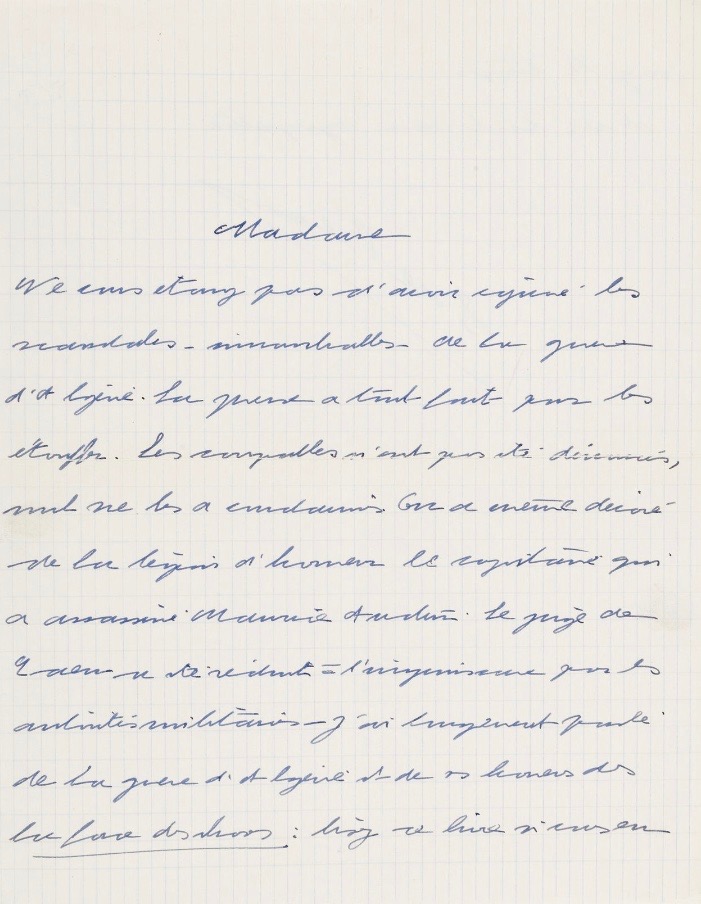 Madame
Ne vous étonnez pas d'avoir ignoré les
scandales - innombrables - de la guerre
d'Algérie. La presse a tout fait pour les
étouffer. Les coupables n'ont pas été dénoncés,
nul ne les a condamnés. On a même décoré
de la légion d'honneur le capitaine qui
a assassiné Maurice Audin. Le juge de
a été réduit à l'impuissance par les
autorités militaires - J'ai longuement parlé
de la guerre d'Algérie et de ses horreurs dans
La force des choses : lisez ce livre si vous en